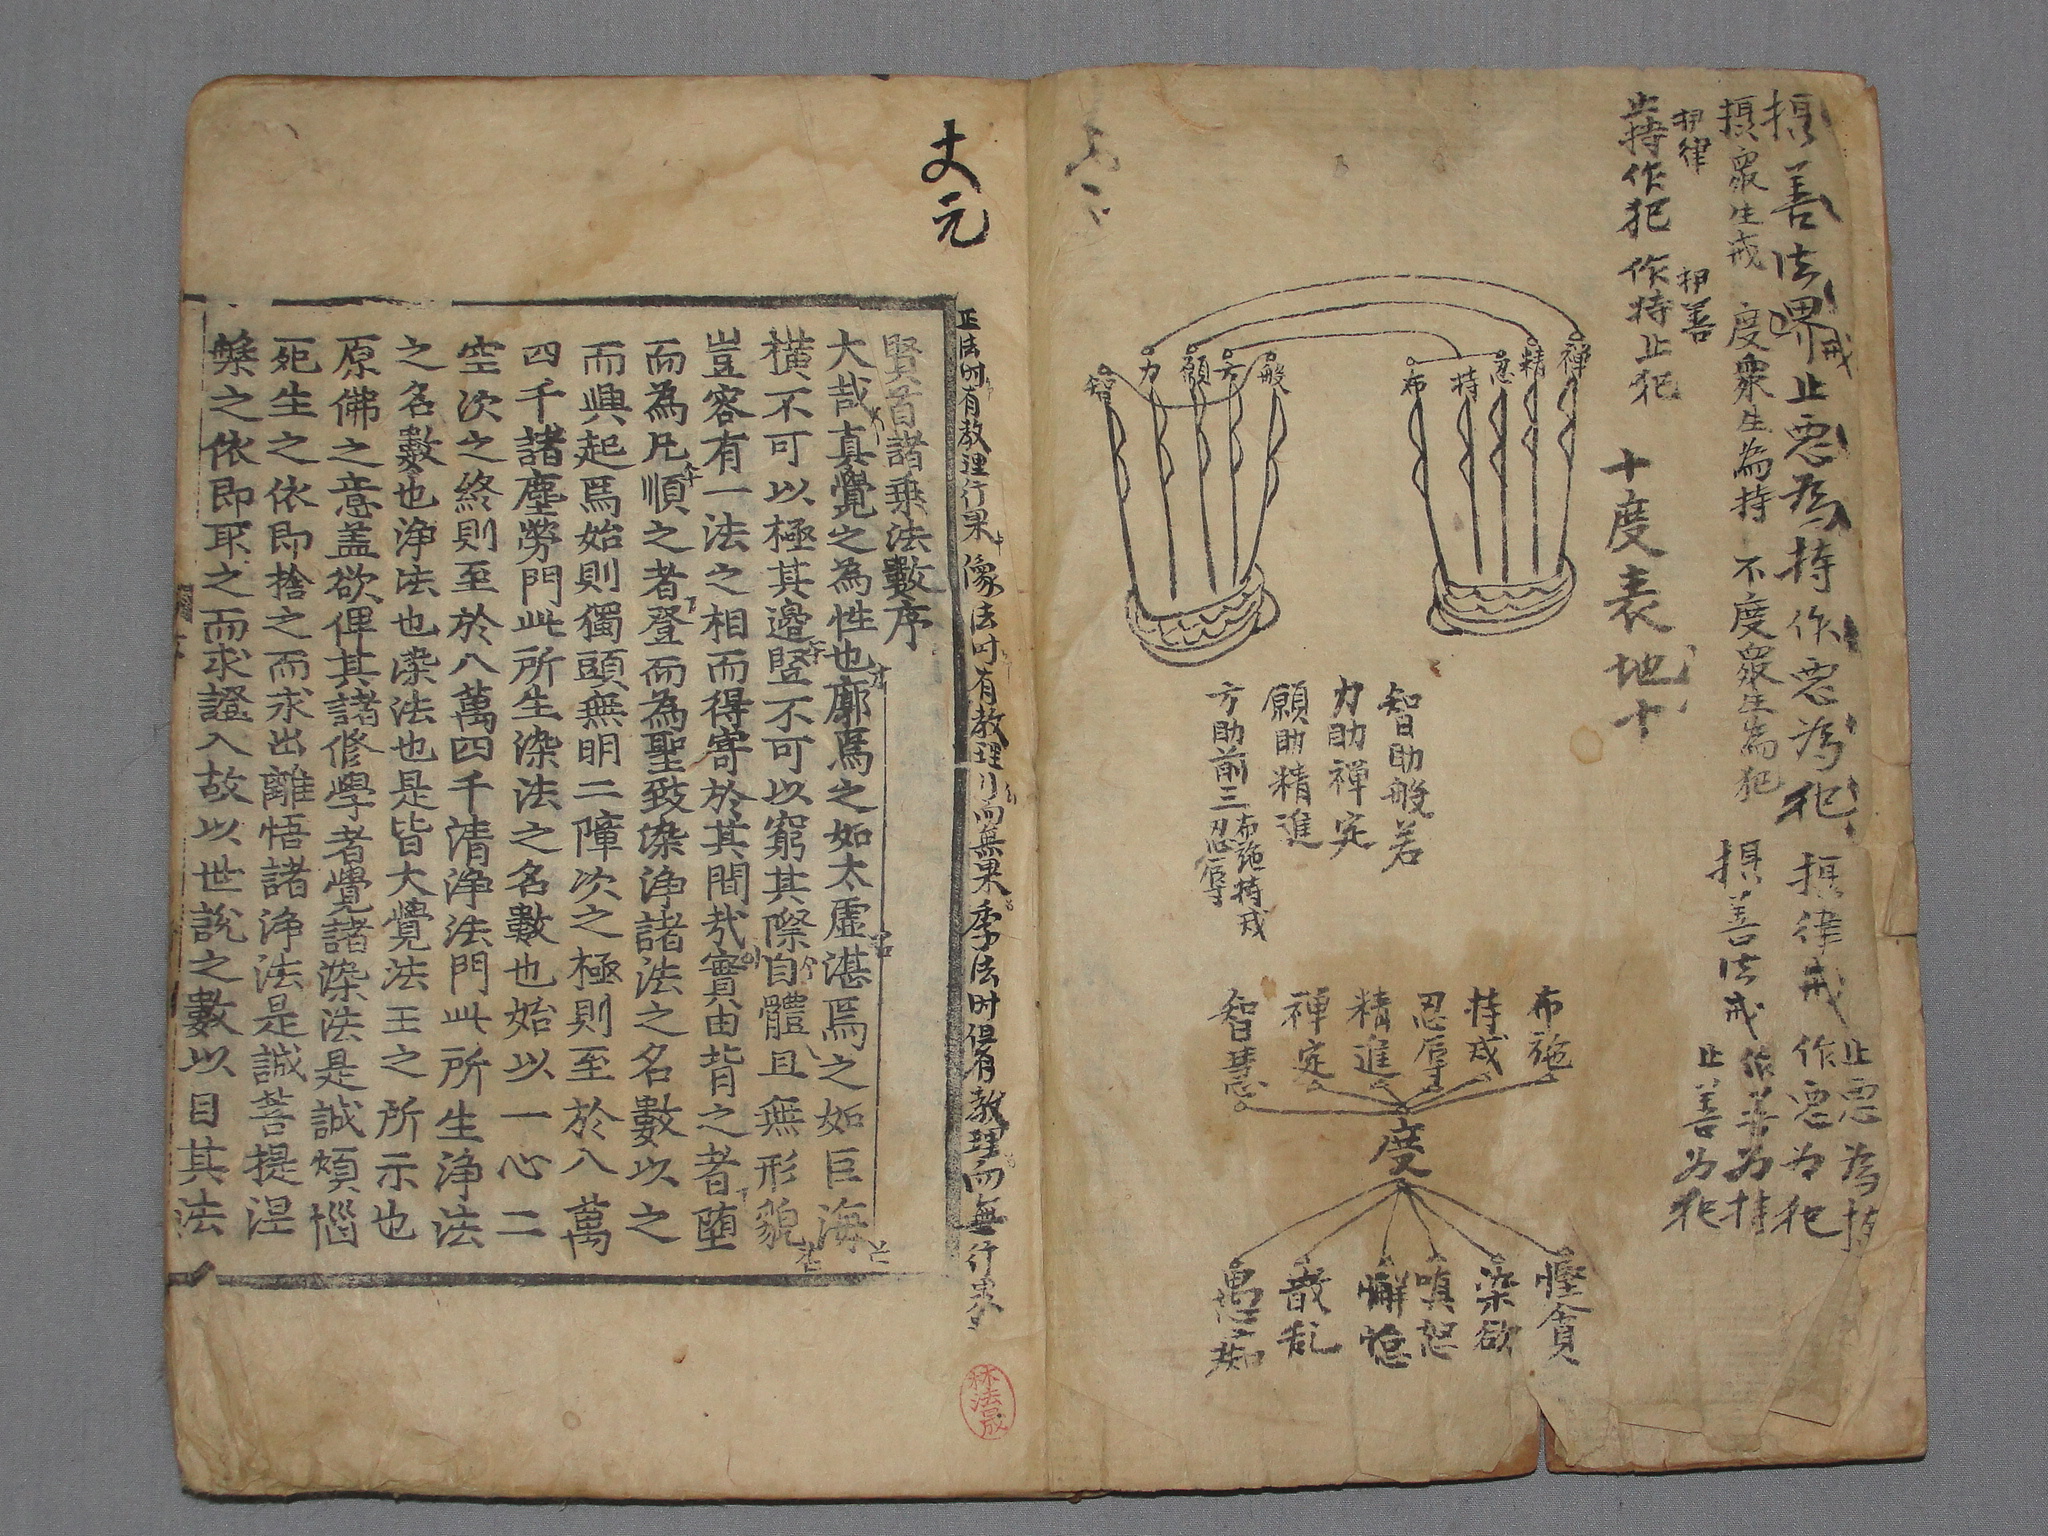 摂善法界戒止悪為持作悪為犯
摂律戒
止悪為持
作悪為犯
摂善法戒
作善为持
止善为犯
摂衆生戒 度衆生為持 不度衆生為犯
律
善
止持作犯 作持止犯
十度表地十
禅
精
忍
持
布
般
方
願
力
智
智助般若
力助禅定
願助精進
方助前三
布施持戒
忍辱
布施
持戒
忍辱
精進
禅定
智慧
度
慳貪
染欲
嗔恕
懈怠
散乱
愚痴
丈元
正法时有教理行果 像法时有教理行而無果 季法时但有教理而無行果
賢首諸乗法數序
大哉真覺之為性也廓焉之如太虚湛焉之如巨海
横不可以極其邊竪不可以窮其際自體且無形貌
豈容有一法之相而得寄於其間㢤實由背之者堕
而為凡順之者登而為聖致染浄諸法之名數以之
而興起焉始則獨頭無明二障次之極則至於八萬
四千諸塵勞門此所生染法之名數也始以一心二
空次之終則至於八萬四千清浄法門此所生浄法
之名數也浄法也染法也是皆大覺法王之所示也
原佛之意盖欲俾其諸修學者覺諸染法是誠煩惱
死生之依即捨之而求出離悟諸浄法是誠菩提涅
槃之依即取之而求證入故以世説之數以目其法
林法晟